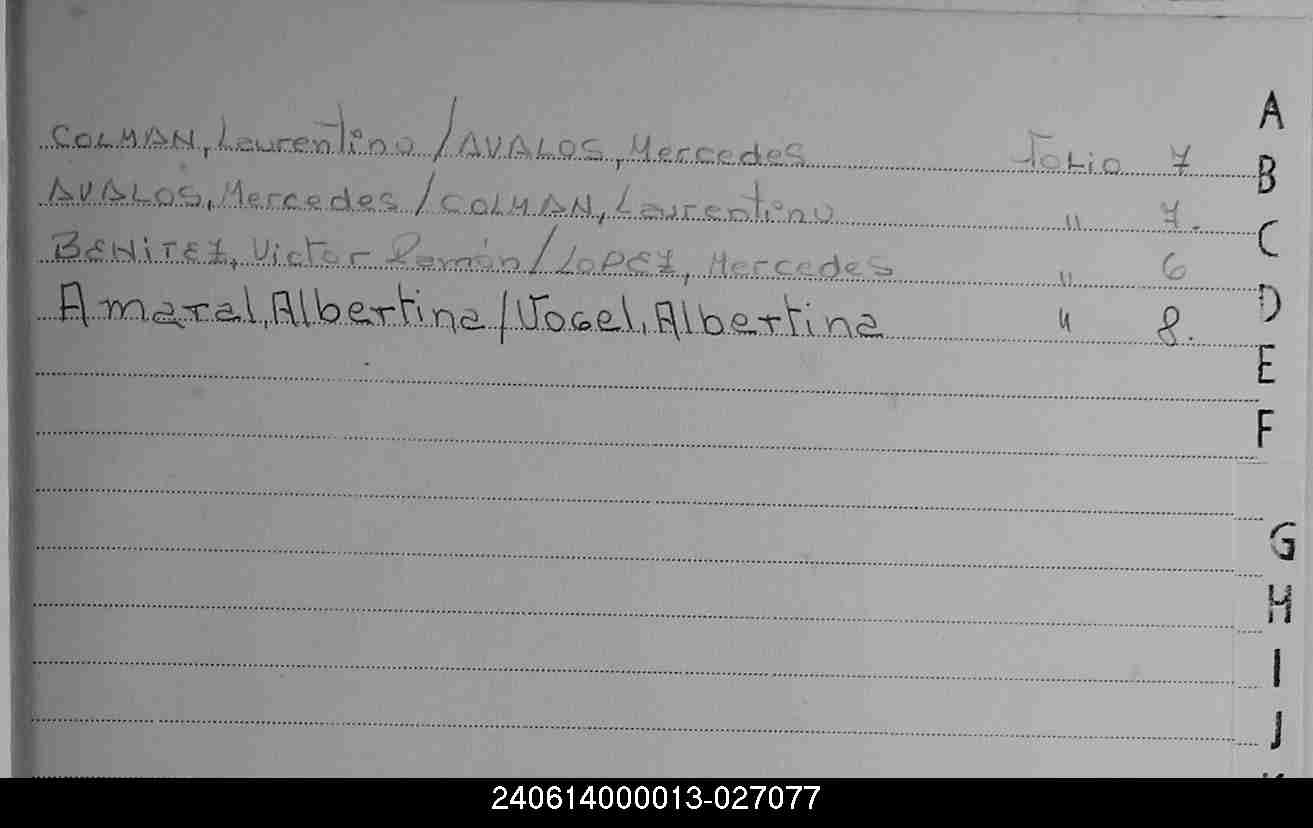 COLMAN, Laurentino / AVALOS, Mercedes Folio 7
AVALOS, Mercedes / COLMAN, Laurentino " 7.
BENITEZ, Victor Ramón / LOPEZ, Mercedes " 6
Amaral, Albertina / Vogel, Albertina " 8.
A
B
C
D
E
F
G
H
I
J
240614000013-027077